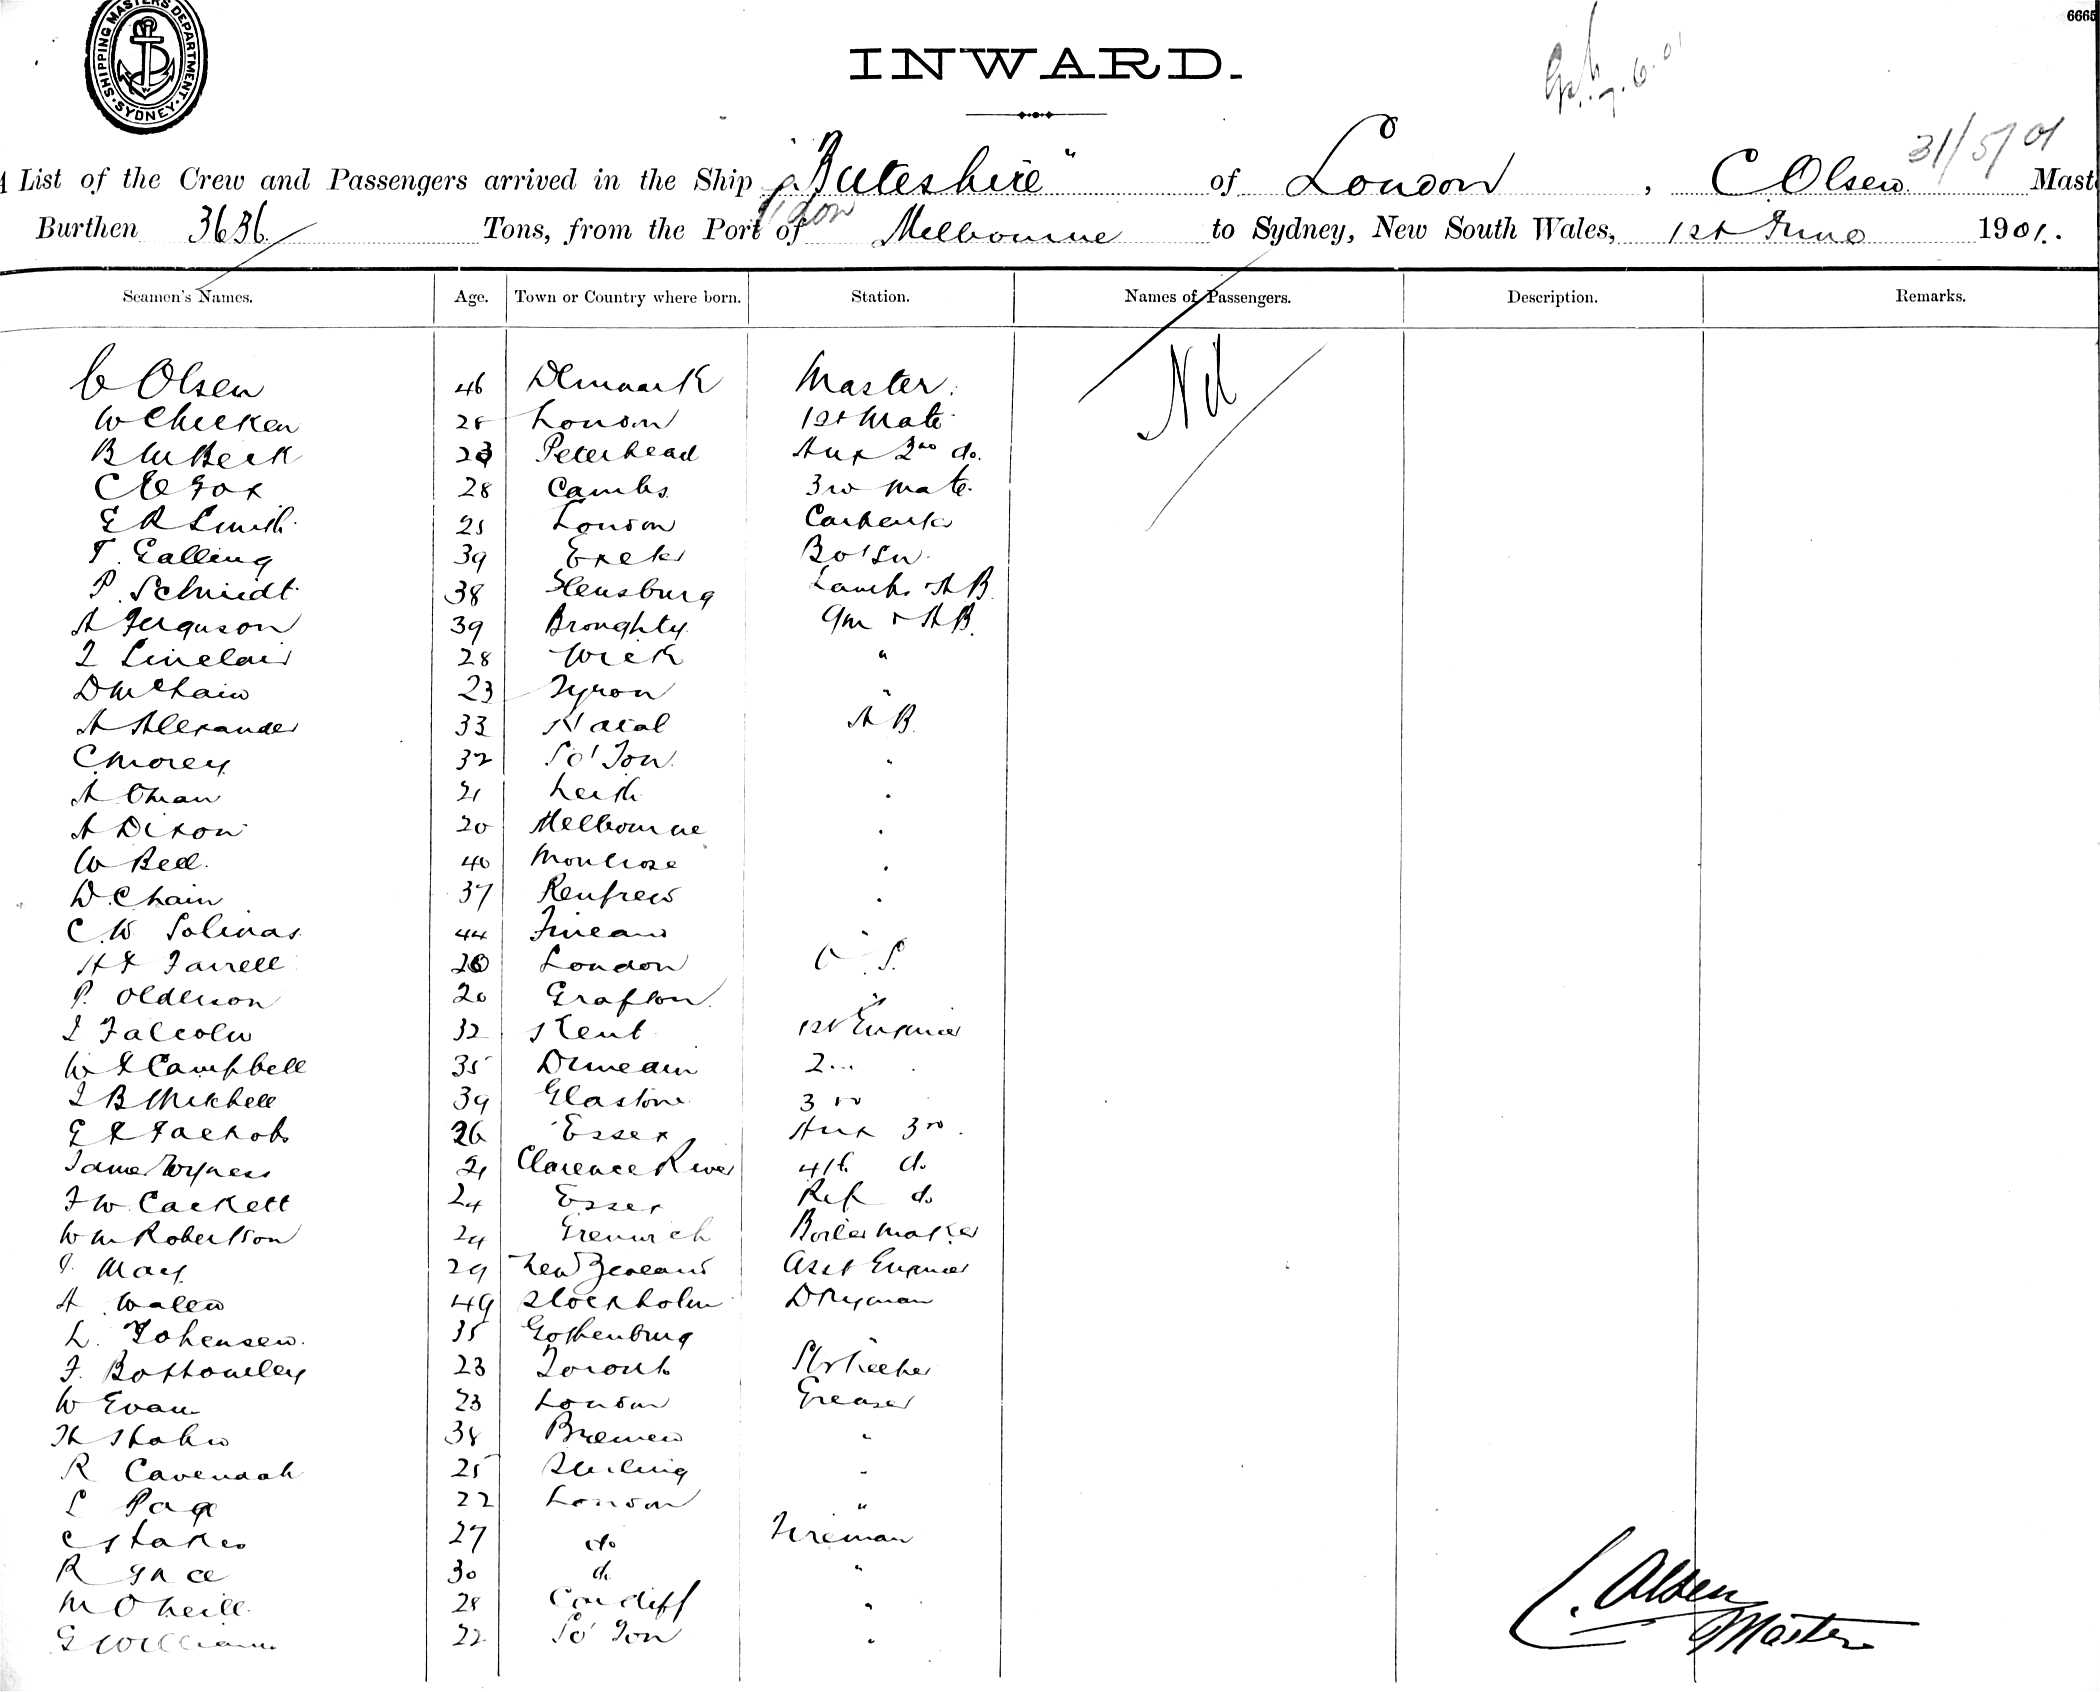 SHIPPING MASTERS DEPARTMENT. SYDNEY.
6665
INWARD.
31/5/01
List of the Crew and Passengers arrived in the Ship "Buteshire" of London, C Olsen Mast
Burthen 3636 Tons, from the Port of Melbourne to Sydney, New South Wales, 1st June 1901.
Seamen's Names. Age. Town or Country where born. Station. Names of Passengers. Description. Remarks.
C Olsen 46 Denmark Master. Nil
W Chicken 28 London 1st Mate
23 Peterhead Aux 2nd do.
C E Fox 28 Cambs. 3rd Mate.
E R Smith 25 London Carpenter
T. Galling 39 Exeter Bo'sn.
P. Schmidt 38 Flensburg Lamps & AB.
A Ferguson 39 Broughty. Qm & AB.
J Sinclair 28 Wick "
D McChain 23 Tyron "
A Alexander 33 Natal AB.
C Morey 32 So'Ton. "
A Oman 21 Leith "
A Dixon 20 Melbourne "
W Bell. 40 Montrose "
D. Chain 37 Renfrew "
C. W Solinas 44 "
H F Farrell 20 London O.S.
P. Olderson 20 Grafton. "
J Falcolm 32 Kent 1st Engineer
W J Campbell 35 Dunedin 2nd "
J B Mitchell 39 Glastone 3rd
26 Essex Aux 3rd.
James Wyness 21 Clarence River 4th do
F W. Cackett 24 Essex Ref do
Wm Robertson 24 Grenwich Boilermaker
J. May. 29 New Zealand Asst Engineer
A Walen 49 Stockholm Dkyman
L. Johensen. 35 Gothenburg "
F. Bottomley 23 Toronto Strkeeper
W Evans 23 London Greaser
H Stahn 38 Bremen "
R Cavendah 25 Sterling "
S Page 22 London "
C Stakes 27 do Fireman
R Grace 30 do "
M O Neill. 28 Cardiff "
G William 22 So'Ton "
C. Olsen
Master